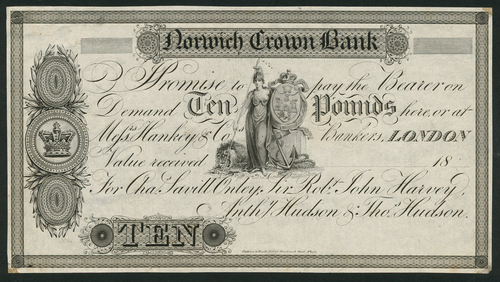 Norwich Crown Bank
I Promise to pay the Bearer on
Demand Ten Pounds here, or at
Messrs Hankey & Cos Bankers, LONDON
Value received 18
For Chas Savill Onley, Sir Robt John Harvey,
Anthy Hudson & Thos Hudson.
TEN